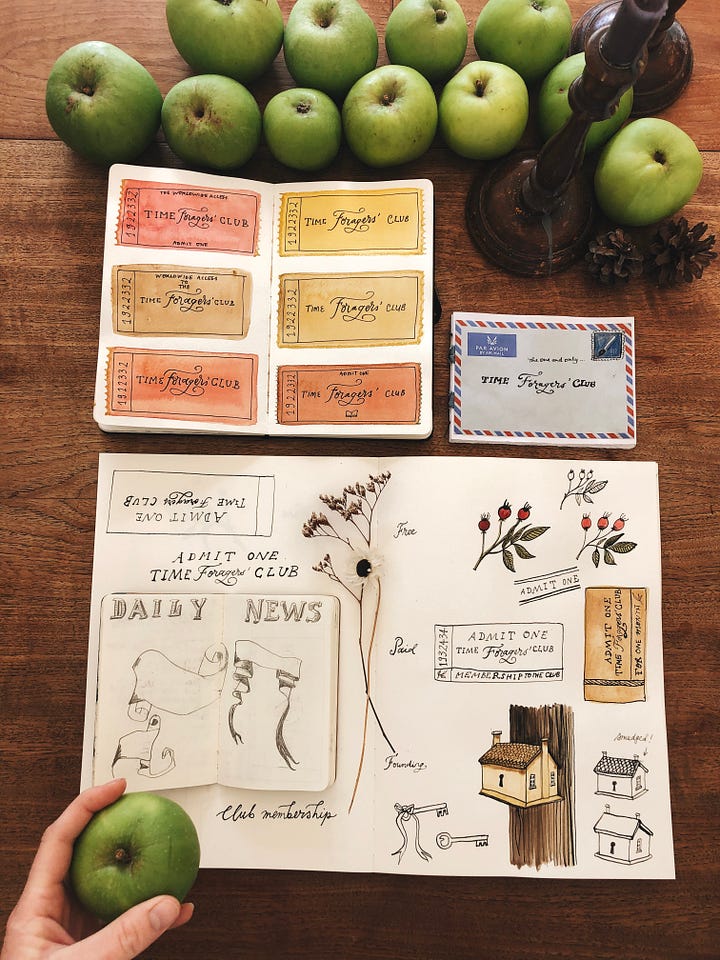 THE WORLDWIDE ACCESS
1922332
TIME Foragers' CLUB
ADMIT ONE
1922332
WORLDWIDE ACCESS
TO THE
TIME Foragers' CLUB
1922332
TIME Foragers' CLUB
1922332
TIME Foragers' CLUB
1922332
TIME Foragers' CLUB
1922332
ADMIT ONE
TIME Foragers' CLUB
PAR AVION
BY AIR MAIL
the one and only...
TIME Foragers' CLUB
ADMIT ONE
TIME Foragers' CLUB
ADMIT ONE
TIME Foragers' CLUB
DAILY NEWS
Club membership
Free
ADMIT ONE
Paid
1932434
ADMIT ONE
TIME Foragers' CLUB
MEMBERSHIP TO THE CLUB
ADMIT ONE
TIME Foragers' CLUB
FOR ONE MONTH
Founding
smudged!